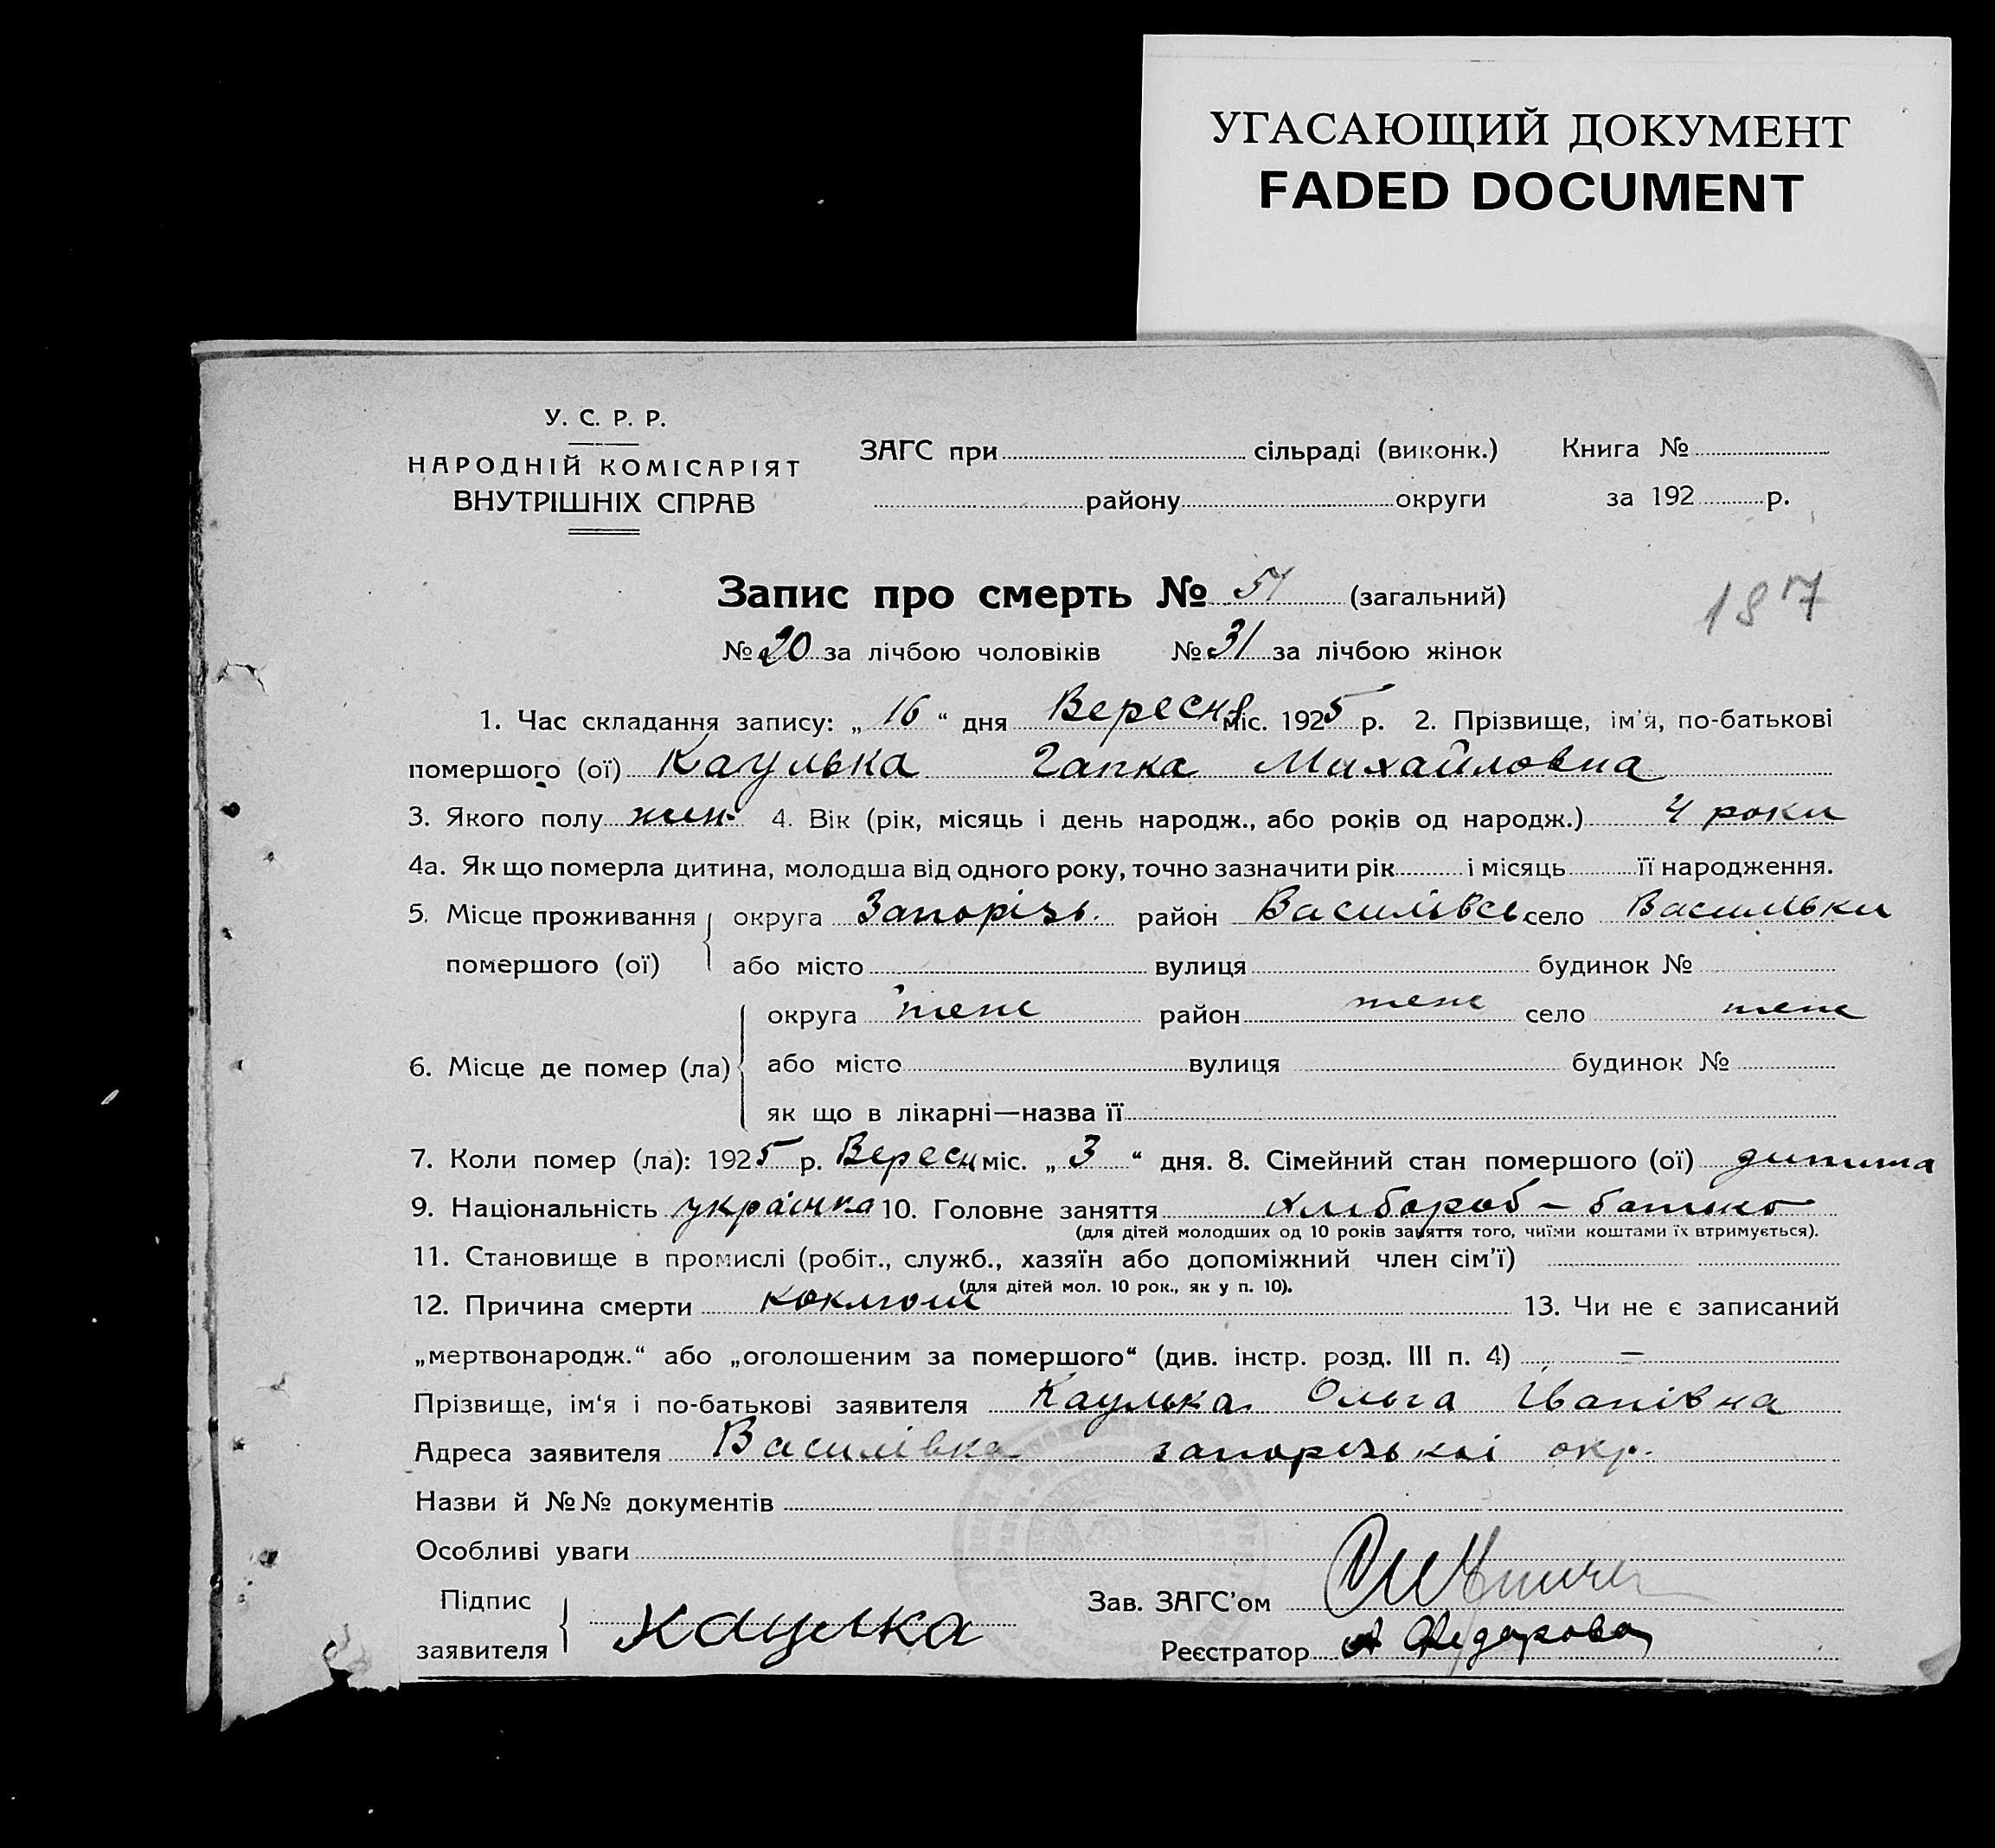 УГАСАЮЩИЙ ДОКУМЕНТ
FADED DOCUMENT
У. С. Р. Р.
НАРОДНІЙ КОМІСАРІЯТ
ВНУТРІШНІХ СПРАВ
ЗАГС при сільраді (виконк.) Книга №
району округи за 192 р.
Запис про смерть № 51 (загальний)
187
№ 20 за лічбою чоловіків № 31 за лічбою жінок
1. Час складання запису: „ 16 “ дня Вересня міс. 1925 р. 2. Прізвище, ім'я, по-батькові
помершого (ої) Каулька Гапка Михайловна
3. Якого полу жин. 4. Вік (рік, місяць і день народж., або років од народж.) 4 роки
4а. Як що померла дитина, молодша від одного року, точно зазначити рік і місяць її народження.
5. Місце проживання округа Запорізь. район Василівсь село Васильвки
помершого (ої) або місто вулиця будинок №
округа теж район теж село теж
6. Місце де помер (ла) або місто вулиця будинок №
як що в лікарні—назва її
7. Коли помер (ла): 1925 р. Вересн міс. „ 3 “ дня. 8. Сімейний стан помершого (ої) дитина
9. Національність українка 10. Головне заняття хлибороб – батько
(для дітей молодших од 10 років заняття того, чиїми коштами їх втримується).
11. Становище в промислі (робіт., служб., хазяїн або допоміжний член сім'ї)
(для дітей мол. 10 рок., як у п. 10).
12. Причина смерти коклюш 13. Чи не є записаний
„мертвонародж.“ або „оголошеним за помершого“ (див. інстр. розд. III п. 4) –
Прізвище, ім'я і по-батькові заявителя Каулька Ольга Іванівна
Адреса заявителя Василівка запорізькоі окр.
Назви й №№ документів
Особливі уваги
Підпис Зав. ЗАГС'ом
заявителя Каулка Реєстратор А Федорова